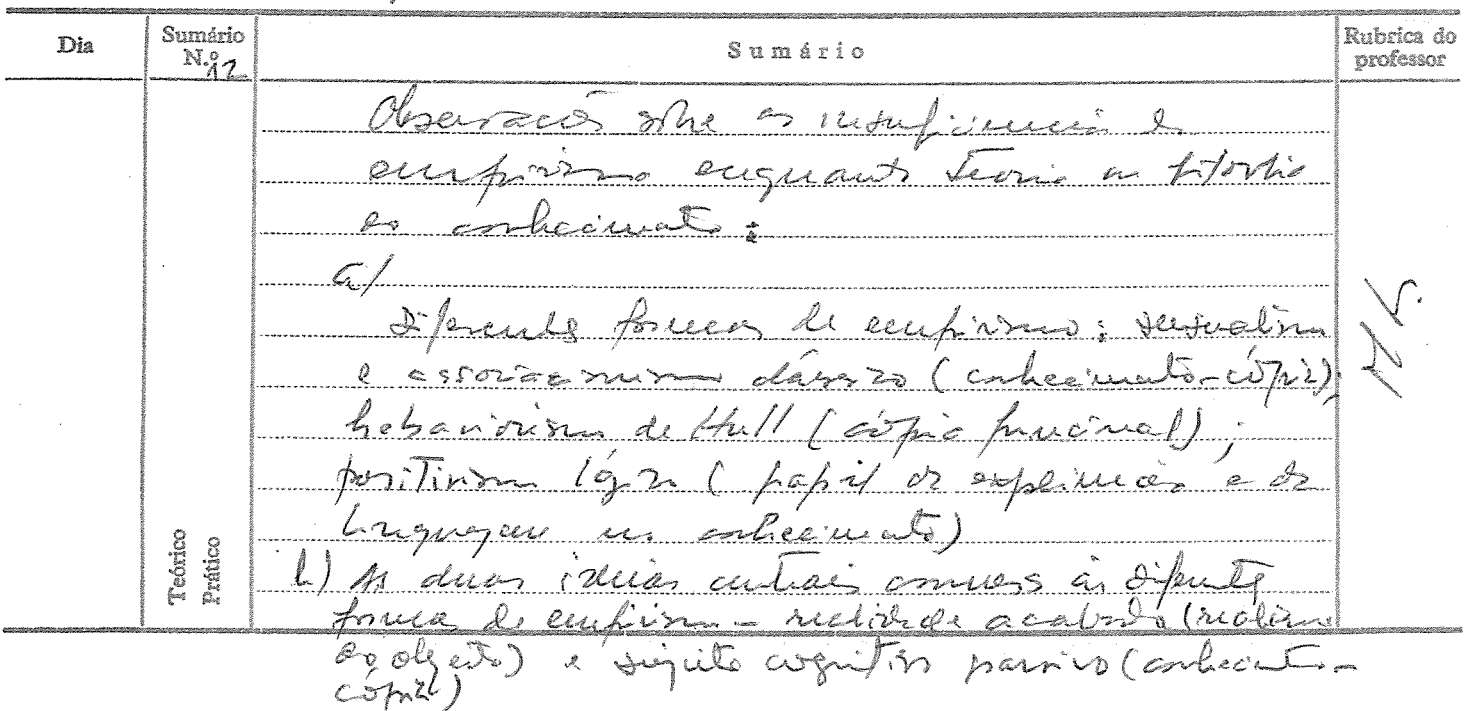 Dia
Sumário
N.º 12
Sumário
Rubrica do
professor
Observações sobre as insuficiências do
empirismo enquanto teoria ou filosofia
do conhecimento:
a/
Diferentes formas de empirismo: sensualismo
e associacionismo clássico (conhecimento-cópia);
behaviorismo de Hull (cópia funcional);
positivismo lógico (papel da experiência e da
linguagem no conhecimento)
b) As duas ideias centrais comuns às diferentes
formas de empirismo - realidade acabada (realismo
do objecto) e sujeito cognitivo passivo (conhecimento-
cópia)
Teórico
Prático